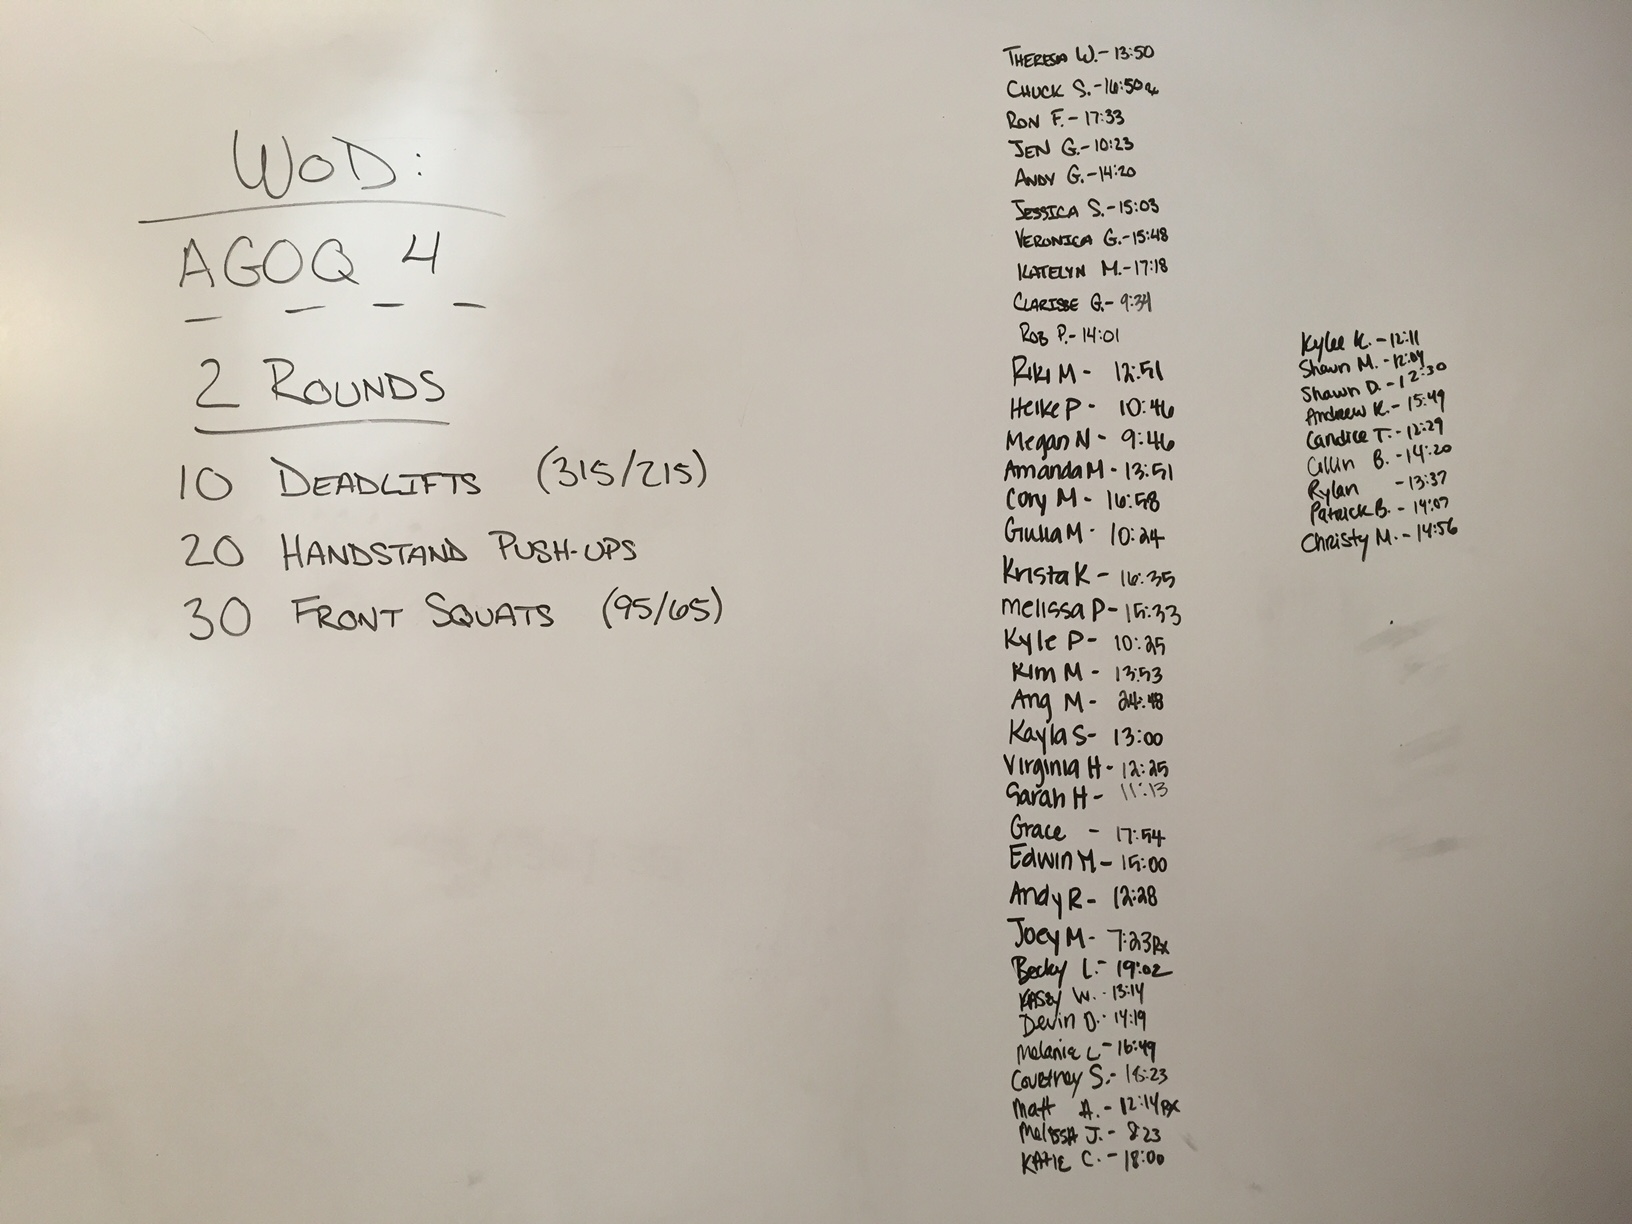 WOD:
AGOQ 4
2 ROUNDS
10 DEADLIFTS (315/215)
20 HANDSTAND PUSH-UPS
30 FRONT SQUATS (95/65)
THERESA W.- 13:50
CHUCK S.- 16:50 Rx
RON F.- 17:33
JEN G.- 10:23
ANDY G.- 14:20
JESSICA S.- 15:03
VERONICA G.- 15:48
KATELYN M.- 17:18
CLARISSE G.- 9:34
ROB P.- 14:01
Riki M - 12:51
Heike P - 10:46
Megan N - 9:46
Amanda M - 13:51
Cory M - 16:58
Giulia M - 10:24
Krista K - 16:35
Melissa P - 15:33
Kyle P - 10:25
Kim M - 13:53
Ang M - 24:48
Kayla S - 13:00
Virginia H - 12:25
Sarah H - 11:13
Grace - 17:54
Edwin M - 15:00
Andy R - 12:28
Joey M - 7:23 Rx
Becky L.- 19:02
KASEY W.- 13:14
Devin D.- 14:19
Melanie L - 16:49
Courtney S.- 18:23
Matt A.- 12:14 RX
Melissa J.- 8:23
KATIE C.- 18:00
Kylee K.- 12:11
Shawn M.- 12:04
Shawn D.- 12:30
Andrew K.- 15:49
Candice T.- 12:29
Collin B.- 14:20
Rylan - 13:37
Patrick B.- 14:07
Christy M.- 14:56